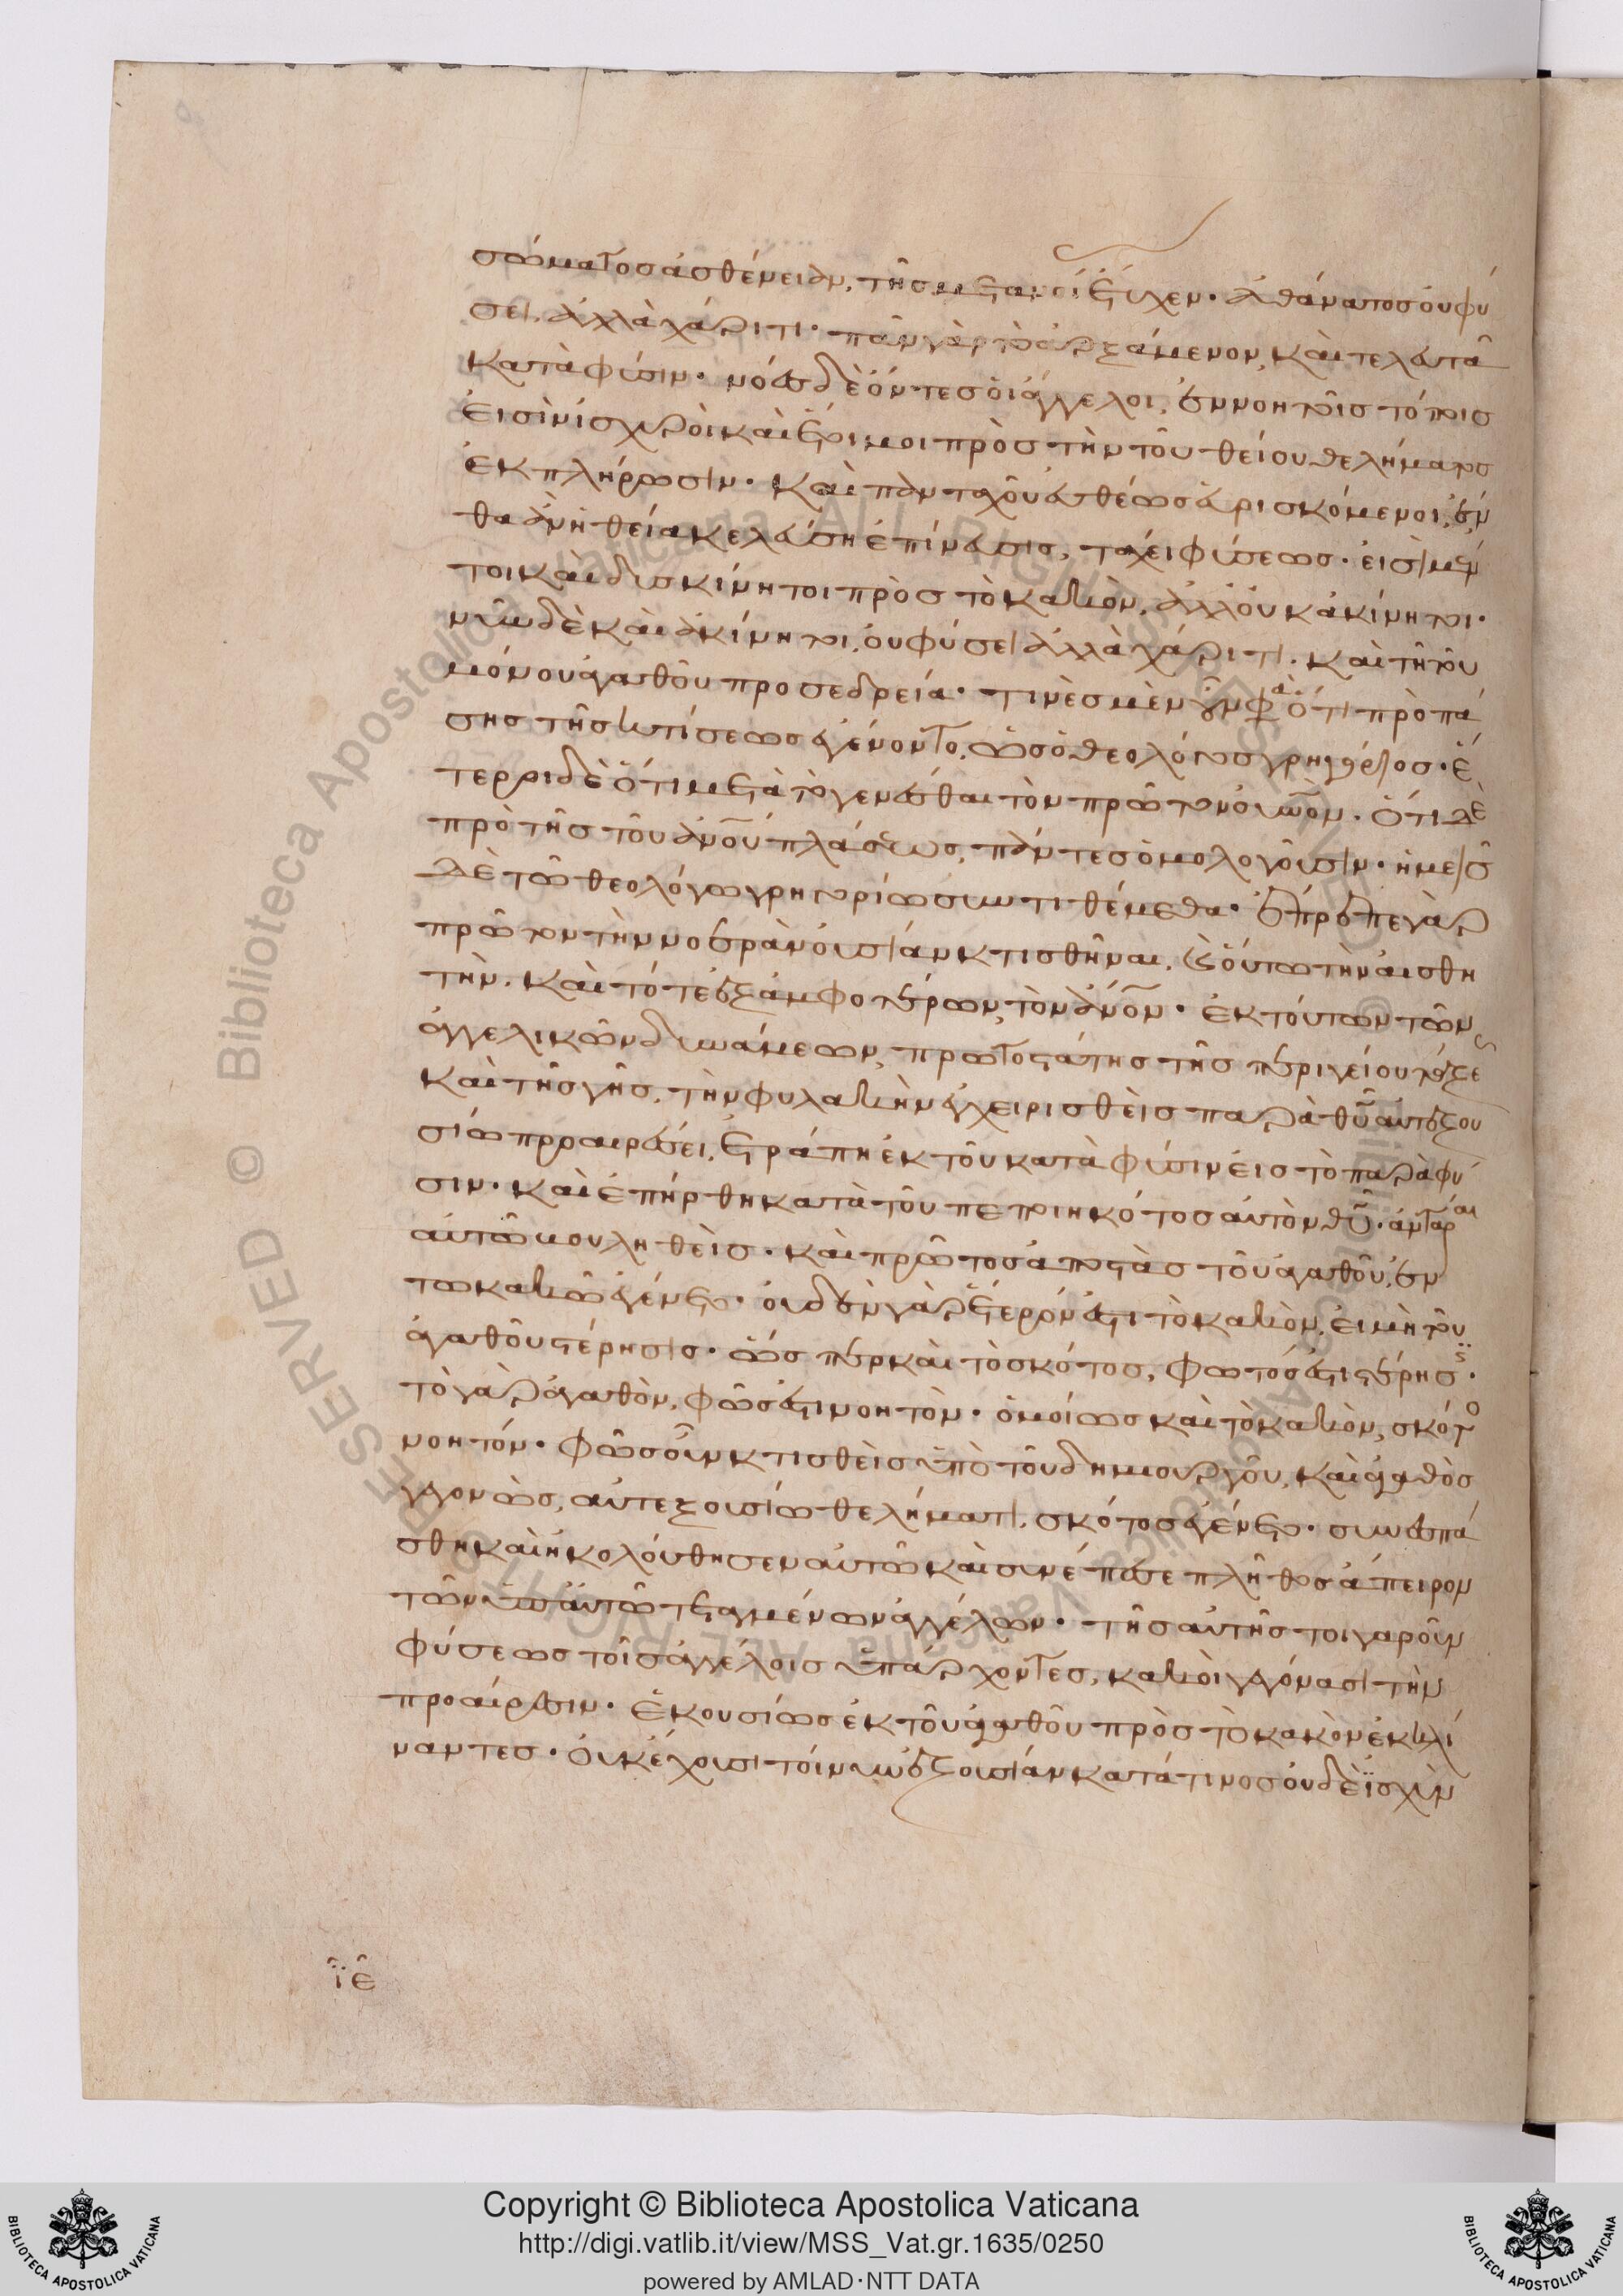 σώματος ἀσθένειαν, τῆς μετανοί ἔτυχεν· ἀθάνατος οὐ φύ
σει, ἀλλὰ χάριτι· πᾶν γὰρ τὸ ἀρξάμενον, καὶ τελευτᾶ
κατὰ φύσιν· νόες δὲ ὄντες οἱ ἄγγελοι, ἐν νοητοῖς τόποις
εἰσὶν ἰσχυροὶ καὶ ἕτοιμοι πρὸς τὴν τοῦ θείου θελήματος
ἐκπλήρωσιν· καὶ πανταχοῦ εὐθέως εὑρισκόμενοι, ἔν
θα ἂν ἡ θεία κελεύση ἐπίνευσις, τάχει φύσεως· εἰσὶ μέν
τοι καὶ δυσκίνητοι πρὸς τὸ κακὸν, ἀλλ οὐκ ἀκίνητοι·
νῦν δὲ καὶ ἀκίνητοι, οὐ φύσει ἀλλὰ χάριτι· καὶ τῆ τοῦ
μόνου ἀγαθοῦ προσεδρεία· τινὲς μὲν οὖν φα ὅτι πρὸ πά
σης τῆς κτίσεως ἐγένοντο, ὡς ὁ θεολόγος γρηγόριος· ἕ
τεροι δὲ ὅτι μετὰ τὸ γενέσθαι τὸν πρῶτον οὐνὸν· ὅτι δὲ
πρὸ τῆς τοῦ ἀνοῦ πλάσεως, πάντες ὁμολογοῦσιν· ἡμεῖς
δὲ τῶ θεολόγω γρηγορίω συντιθέμεθα· ἔπρεπε γὰρ
πρῶτον τὴν νοερὰν οὐσίαν κτισθῆναι, καὶ οὕτω τὴν αἰσθη
τὴν, καὶ τότε ἐξ ἀμφοτέρων, τὸν ἀνὸν· ἐκ τούτων τῶν
ἀγγελικῶν δυνάμεων, πρωτοστάτης τῆς περιγείου τάξε
καὶ τῆς γῆς, τὴν φυλακὴν ἐγχειρισθεὶς παρὰ θῦ αὐτεξου
σίω προαιρέσει, ἐτράπη ἐκ τοῦ κατὰ φύσιν εἰς τὸ παρὰ φύ
σιν· καὶ ἐπήρθη κατὰ τοῦ πεποιηκότος αὐτὸν θῦ· ἀνταραι
αὐτῶ βουληθεὶς· καὶ πρῶτος ἀποστὰς τοῦ ἀγαθοῦ, ἐν
τῶ κακῶ ἐγένετο· οὐδὲν γὰρ ἕτερόν ἐστι τὸ κακὸν, εἰ μὴ τοῦ
ἀγαθοῦ στέρησις· ὥσπερ καὶ τὸ σκότος, φωτός ἐστι στέρησς·
τὸ γὰρ ἀγαθὸν, φῶς ἐστι νοητὸν· ὁμοίως καὶ τὸ κακὸν, σκότο
νοητόν· φῶς οὖν κτισθεὶς ὑπὸ τοῦ δημιουργοῦ, καὶ ἀγαθὸς
γεγονὼς, αὐτεξουσίω θελήματι, σκότος ἐγένετο· συνεσπά
σθη καὶ ἠκολούθησεν αὐτῶ καὶ συνέπεσε πλῆθος ἄπειρον
τῶν ὑπ αὐτῶ τεταγμένων ἀγγέλων· τῆς αὐτῆς τοιγαροῦν
φύσεως τοῖς ἀγγέλοις ὑπάρχοντες, κακοὶ γεγόνασι τὴν
προαίρεσιν· ἑκουσίως ἐκ τοῦ ἀγαθοῦ πρὸς τὸ κακὸν ἐκκλί
ναντες· οὐκ ἔχουσι τοίνυν ἐξουσίαν κατά τινος οὐδὲ ἰσχὺν
ιε
Copyright © Biblioteca Apostolica Vaticana
http://digi.vatlib.it/view/MSS_Vat.gr.1635/0250
powered by AMLAD·NTT DATA